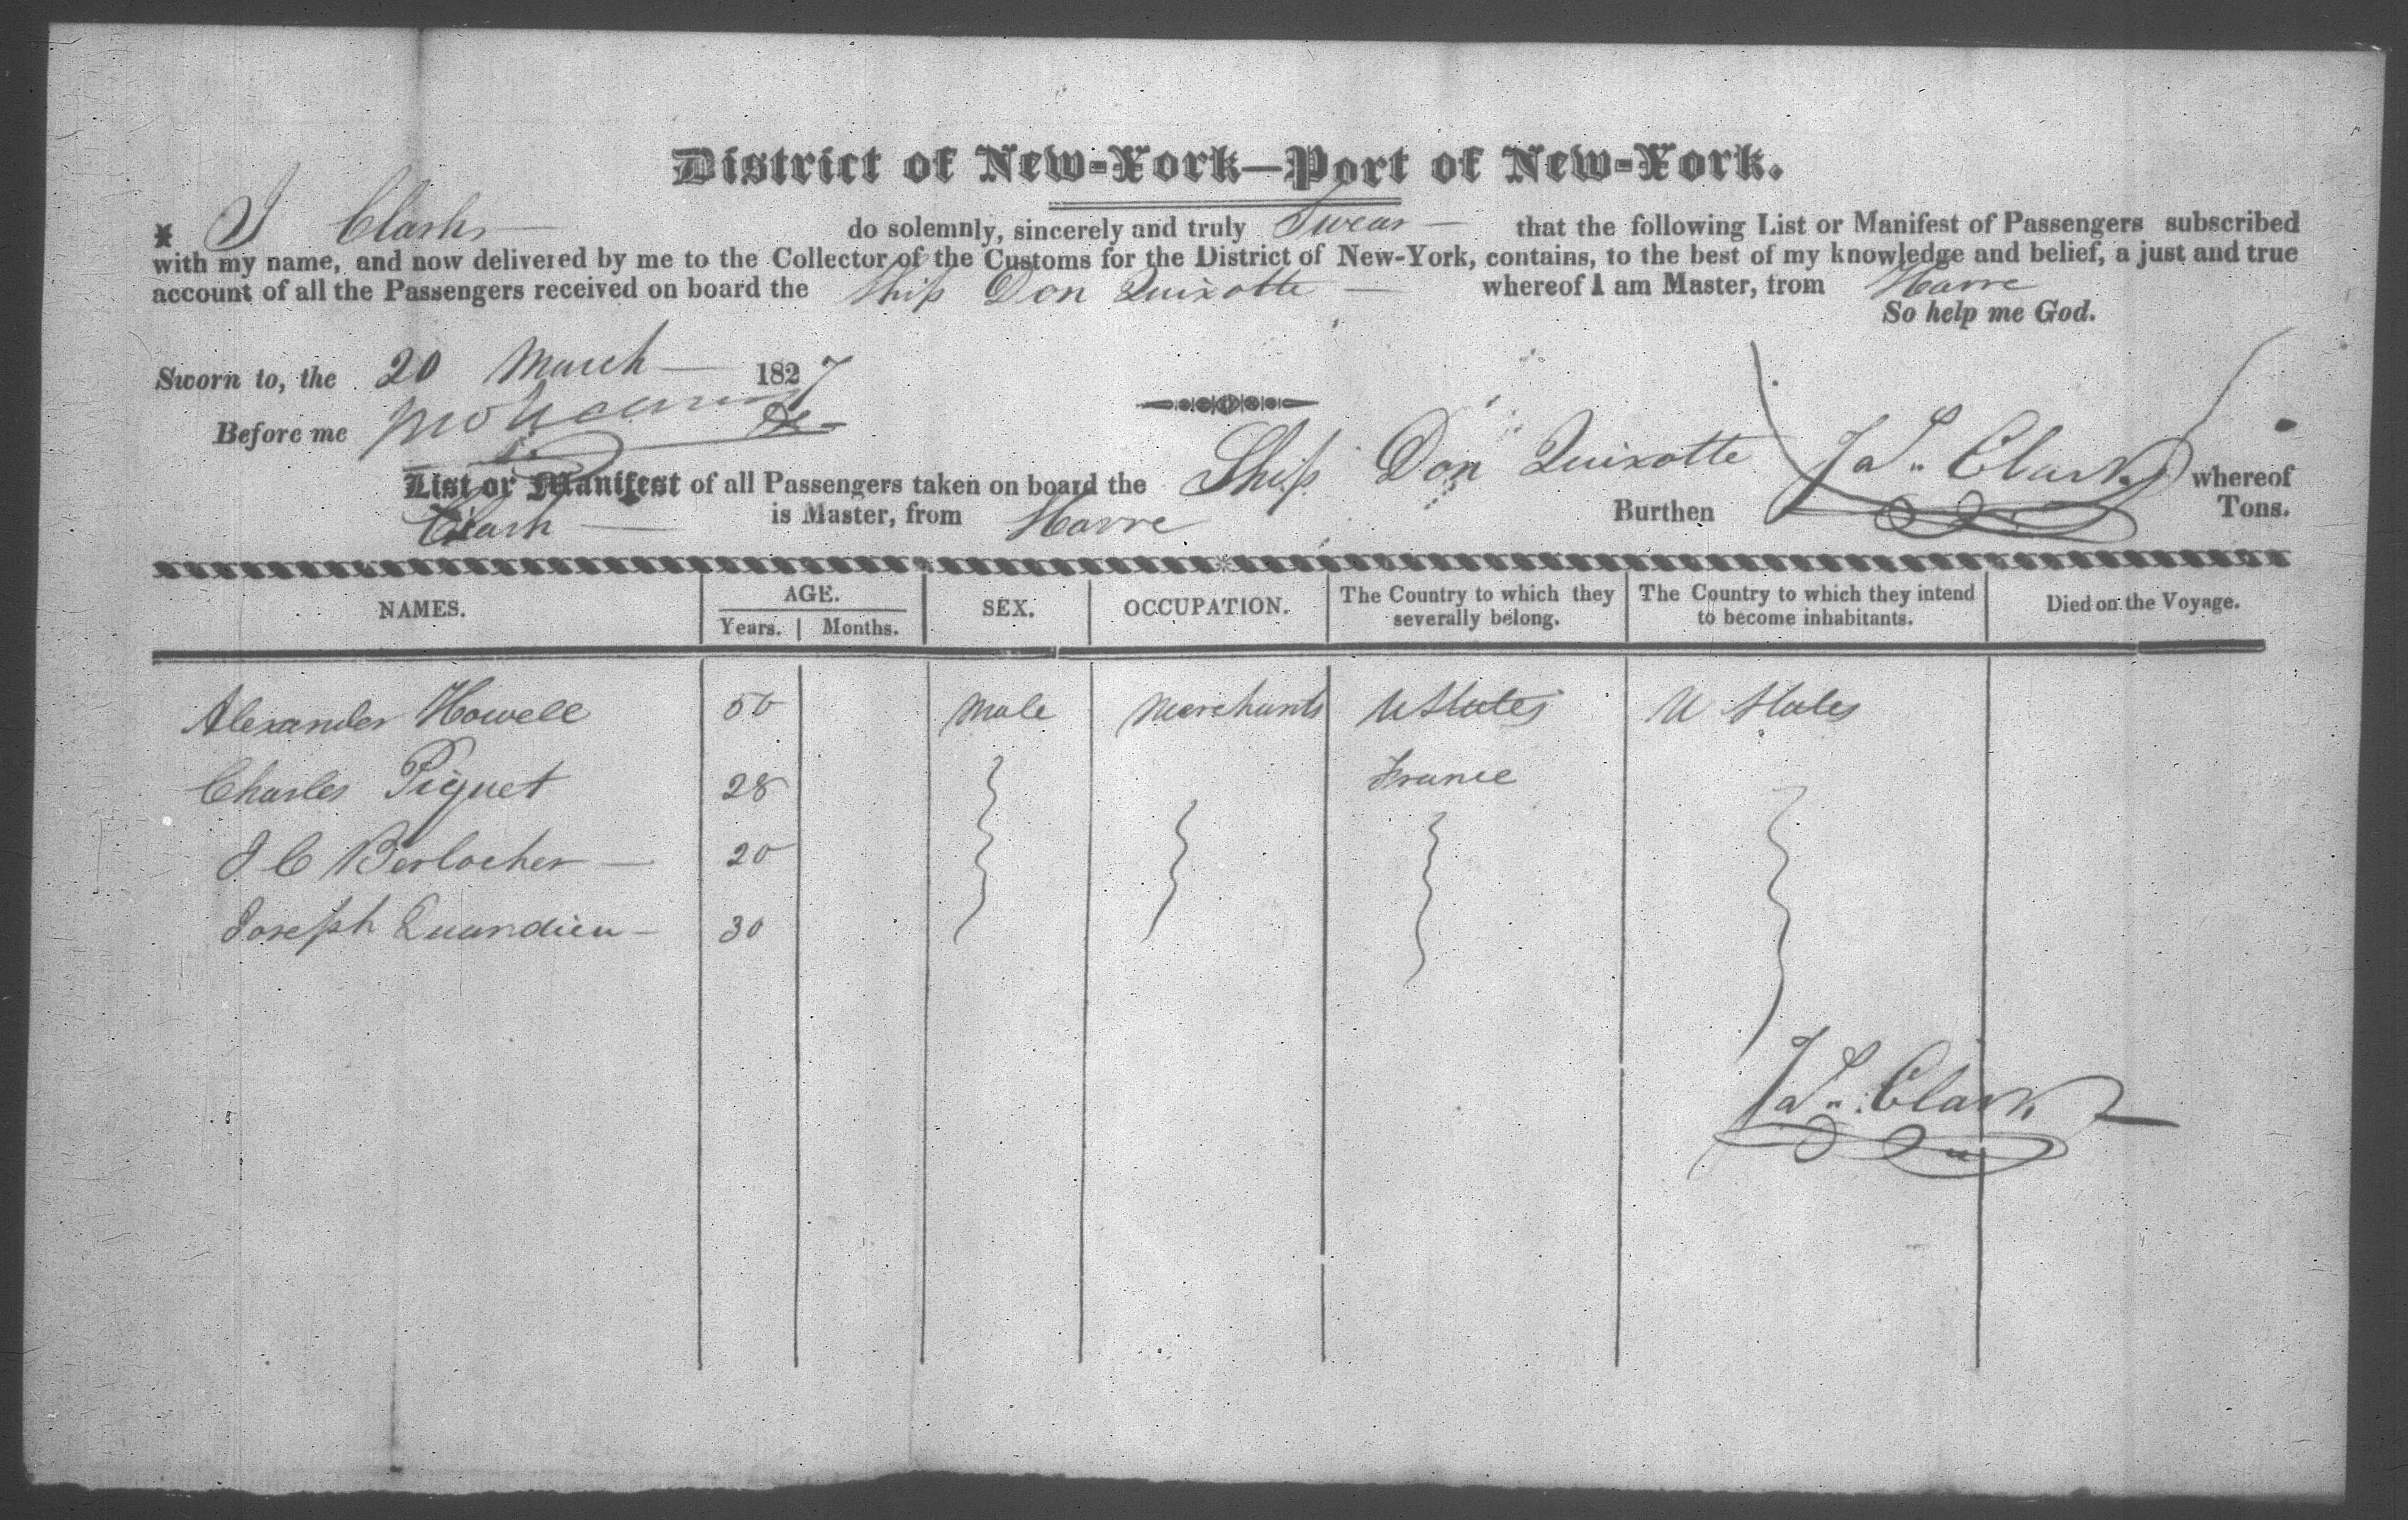 District of New-York—Port of New-York.
I Clark — do solemnly, sincerely and truly Swear — that the following List or Manifest of Passengers subscribed
with my name, and now delivered by me to the Collector of the Customs for the District of New-York, contains, to the best of my knowledge and belief, a just and true
account of all the Passengers received on board the Ship Don Quixotte — whereof I am Master, from Havre
So help me God.
Sworn to, the 20 March — 1827
Before me
Jas. Clark
List or Manifest of all Passengers taken on board the Ship Don Quixotte whereof
Clark — is Master, from Havre Burthen Tons.
NAMES. AGE. SEX. OCCUPATION. The Country to which they severally belong. The Country to which they intend to become inhabitants. Died on the Voyage.
Years. Months.
Alexander Howell 50 Male Merchants U States U States
Charles Piquet 28 France
J C Berlocher — 20
Joseph Quandieu — 30
Jas. Clark